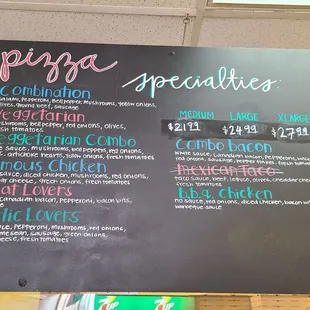 pizza
Combination
pepperoni, bell pepper, mushrooms, yellow onions,
olives, ground beef, sausage
Veggetarian
mushrooms, bell pepper, red onions, olives,
fresh tomatoes
Veggetarian Combo
sauce, mushrooms, bell peppers, red onions,
artichoke hearts, yellow onions, fresh tomatoes
mous Chicken
sauce, diced chicken, mushrooms, red onions,
cheese, green onions, fresh tomatoes
at Lovers
canadian bacon, pepperoni, bacon bits,
lic Lovers
sauce, pepperoni, mushrooms, red onions,
sausage, green onions,
cheese, fresh tomatoes
specialties:
MEDIUM LARGE XLARGE
$21.99 $24.99 $27.99
Combo bacon
sauce, canadian bacon, pepperoni,
red onions, sausage, pepper
mexican taco
taco sauce, beef, lettuce, olives, cheddar
fresh tomatoes
b.b.q. Chicken
no sauce, red onions, diced chicken, bacon
barbeque sauce
7UP
7UP